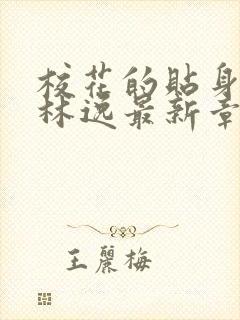 校花的貼身
林逸最新章
王麗梅